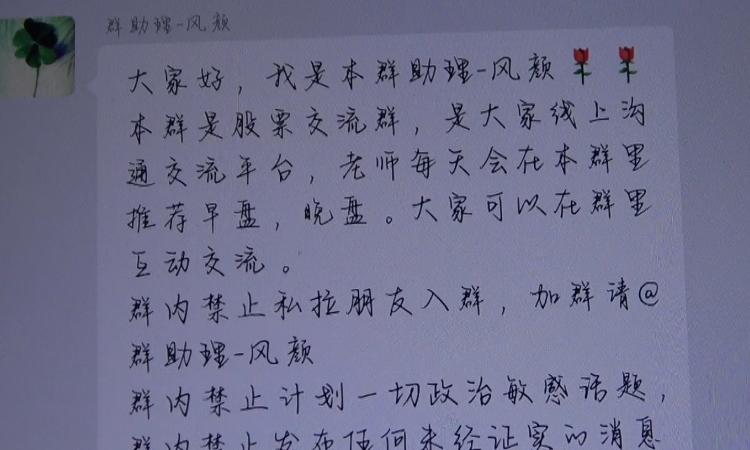 群助理-风颜
大家好，我是本群助理-风颜🌹🌹
本群是股票交流群，是大家线上沟
通交流平台，老师每天会在本群里
推荐早盘，晚盘。大家可以在群里
互动交流。
群内禁止私拉朋友入群，加群请@
群助理-风颜
群内禁止计划一切政治敏感话题，
群内禁止发布任何未经证实的消息